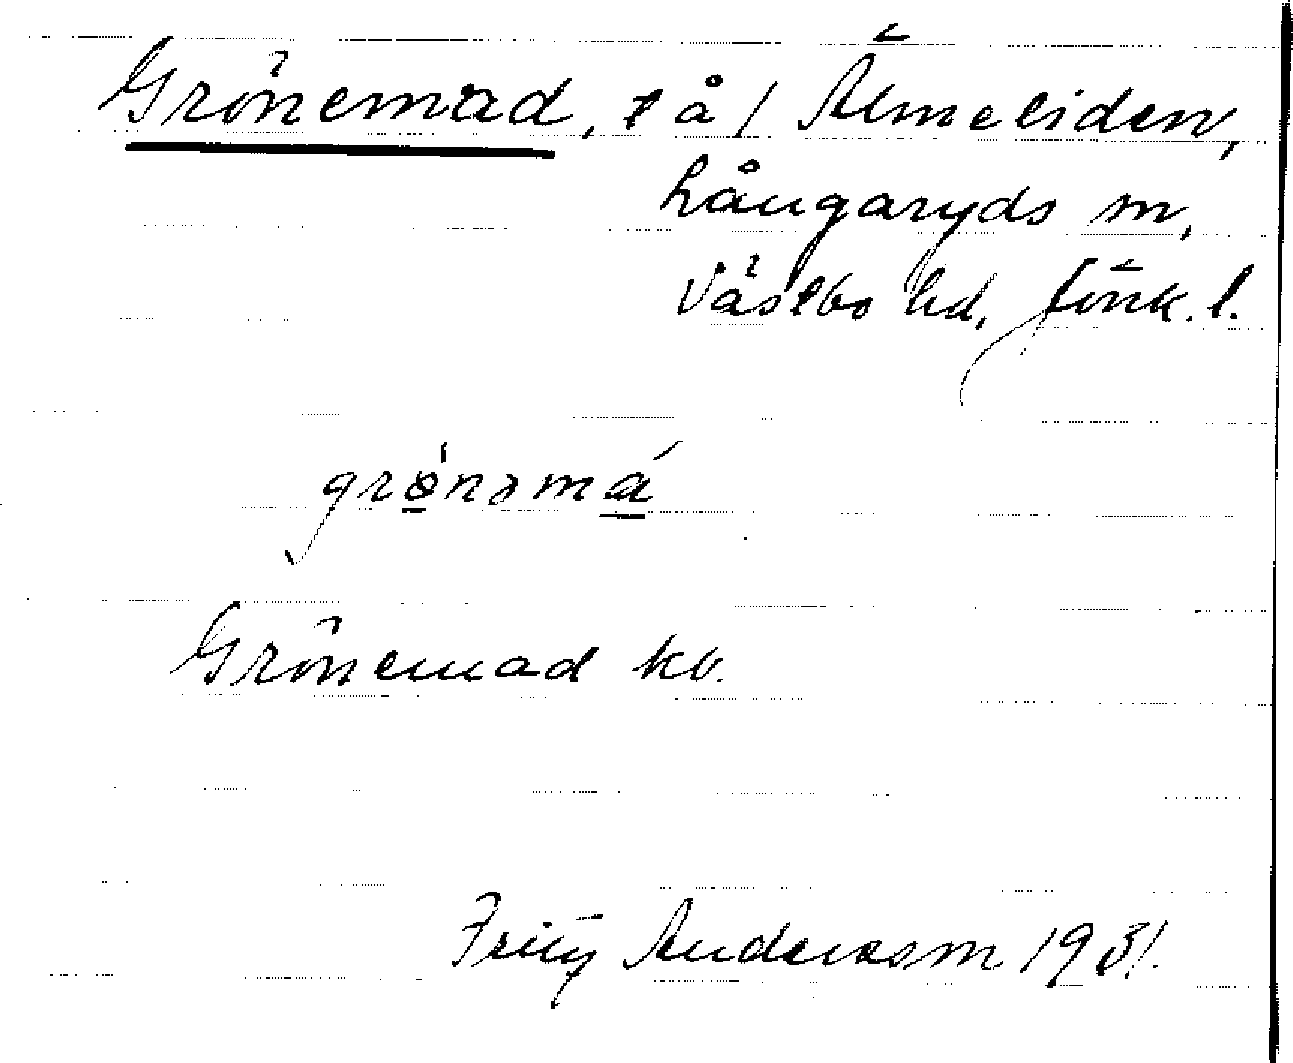 Grönemad, t å / Älmeliden,
Långaryds sn,
Västbo hd, Jönk. l.
grǿnəmá
Grönemad kv.
Fritz Andersson 1931.